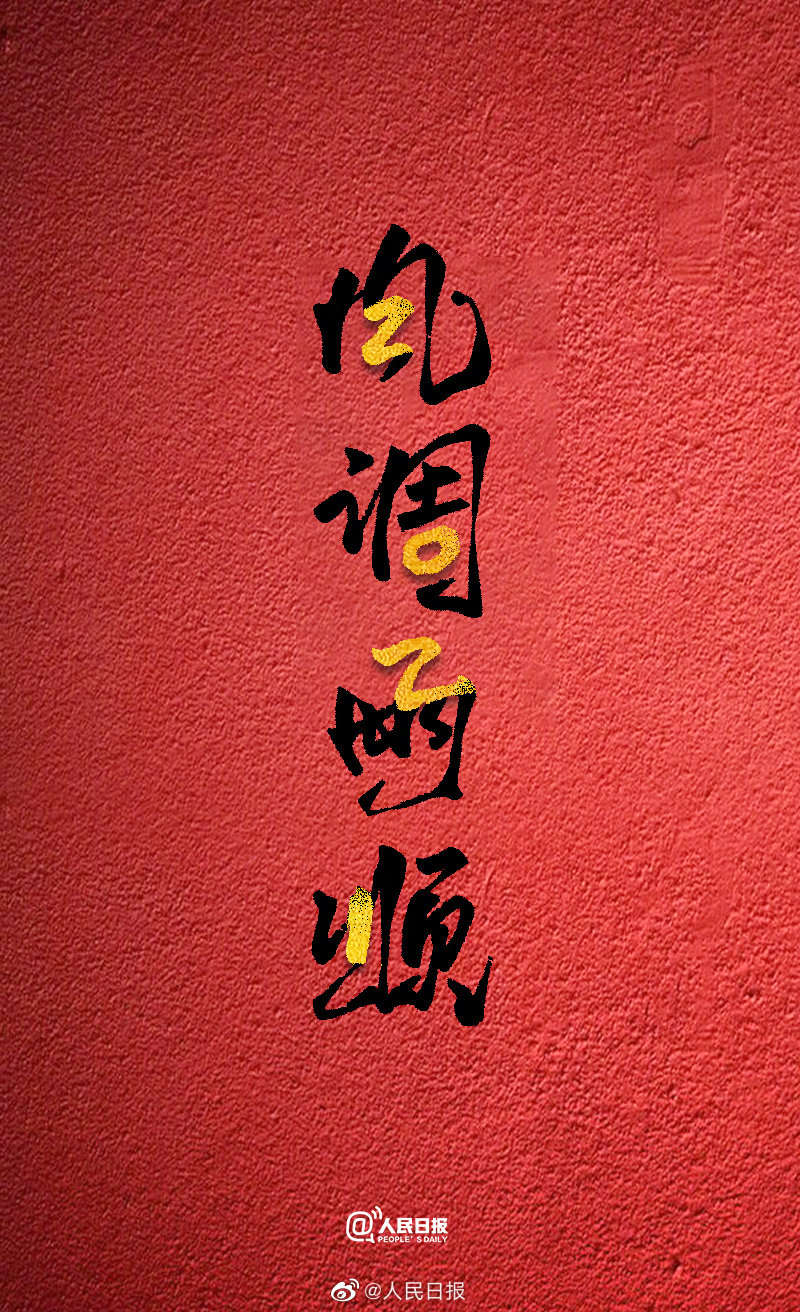 风
调
雨
顺
@人民日报
PEOPLE'S DAILY
@人民日报